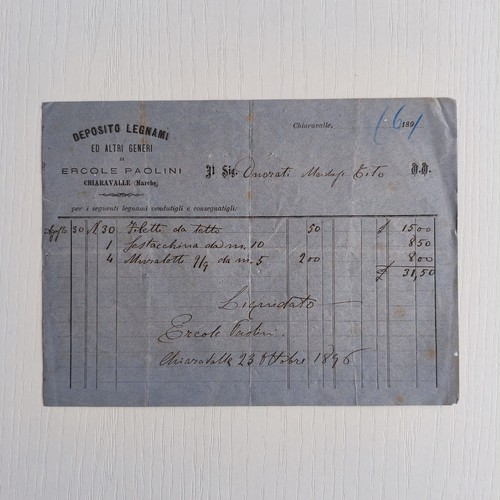 DEPOSITO LEGNAMI
ED ALTRI GENERI
DI
ERCOLE PAOLINI
CHIARAVALLE (Marche)
Chiaravalle, 189
(6)
Il Sig. Onorati Tito D.D.
per i seguenti legnami vendutigli e consegnatigli:
Agosto 30 N. 30 Filette da tetto 50 £ 15 00
1 da m. 10 8 50
4 Muralotte da m. 5 200 8 00
£ 31,50
Liquidato
Ercole Paolini
Chiaravalle 23 Ottobre 1896